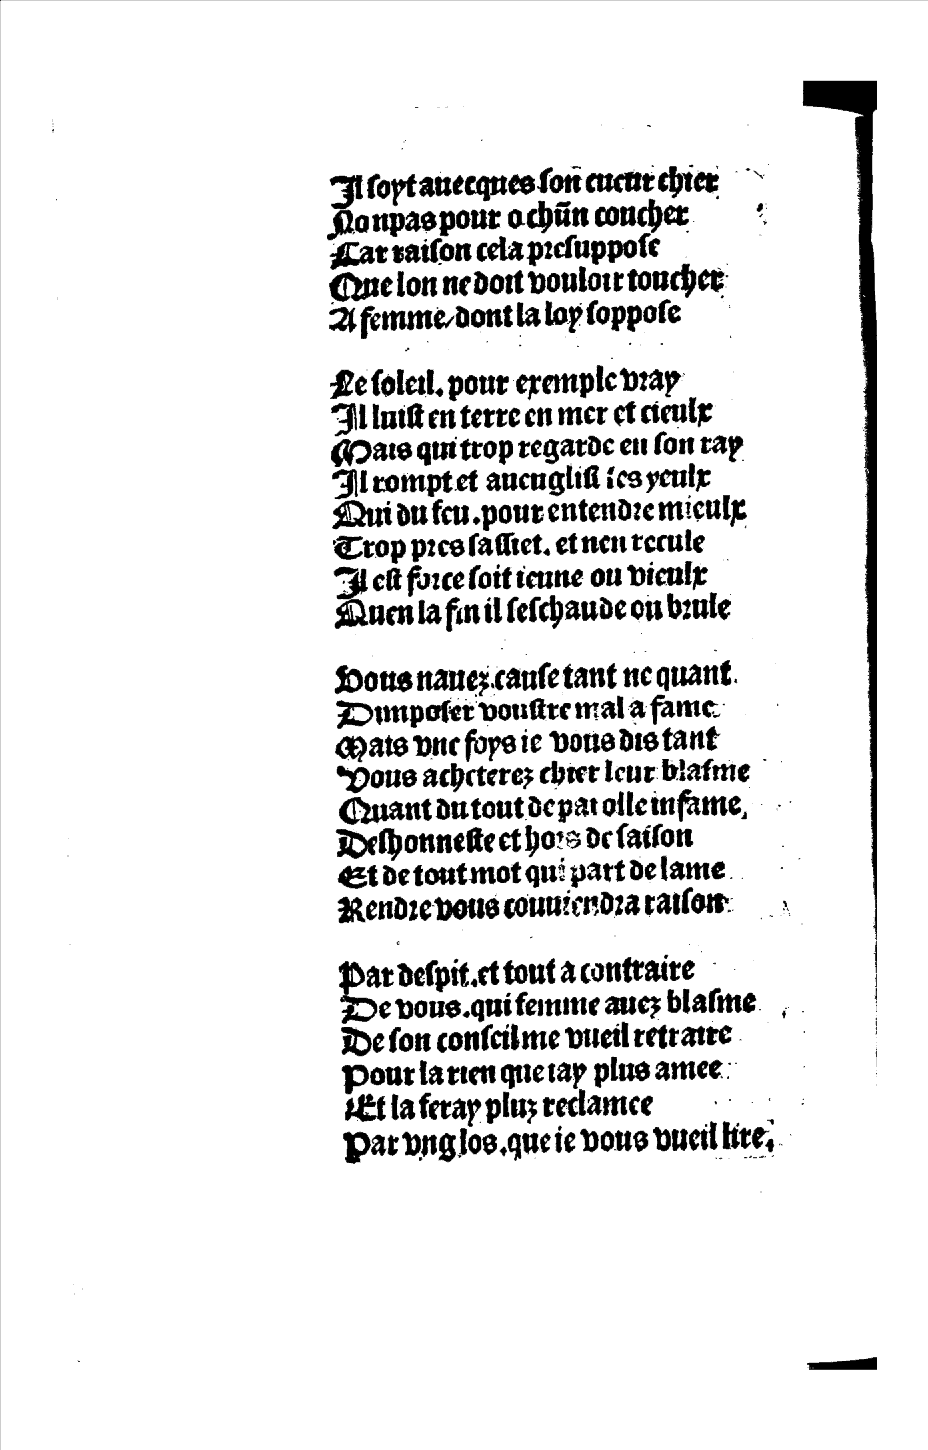 Il soyt auecques son cueur chier
Non pas pour o chũn coucher
Car raison cela presuppose
Que lon ne doit vouloir toucher
A femme/dont la loy soppose

Le soleil. pour exemple vray
Il luist en terre en mer et cieulx
Mais qui trop regarde en son ray
Il rompt et aueuglist ses yeulx
Qui du feu. pour entendre mieulx
Trop pres sassiet. et nen recule
Il est force soit ieune ou vieulx
Quen la fin il seschaude ou brule

Vous nauez cause tant ne quant
Dimposer voustre mal a fame
Mais vne foys ie vous dis tant
Vous acheterez chier leur blasme
Quant du tout de parolle infame,
Deshonneste et hors de saison
Et de tout mot qui part de lame
Rendre vous conuiendra raison

Par despit. et tout a contraire
De vous. qui femme auez blasme
De son conseil me vueil retraire
Pour la rien que iay plus amee
Et la feray pluz reclamee
Par vng los. que ie vous vueil lire.